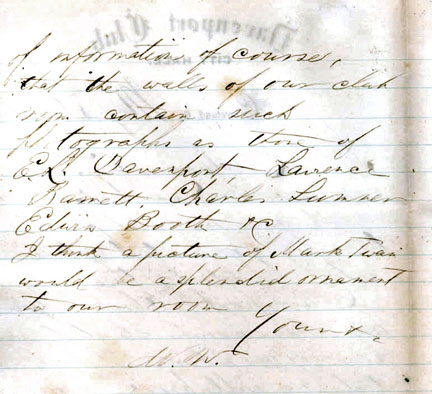 of information of course,
that the walls of our club
room contain such
photographs as those of
E.L. Davenport, Lawrence
Barrett, Charles Sumner
Edwin Booth &c
I think a picture of Mark Twain
would be a splendid ornament
to our room
Yours &c
W. W.
Davenport Club
CITY HALL